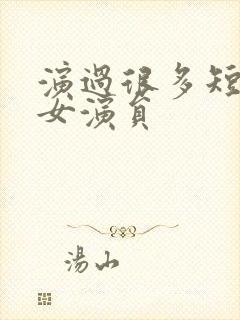 演過很多短
女演員
湯山